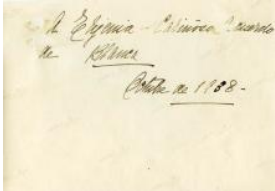 A Efigenia - Cariñoso recuerdo
de Blanca
Octubre de 1908 -